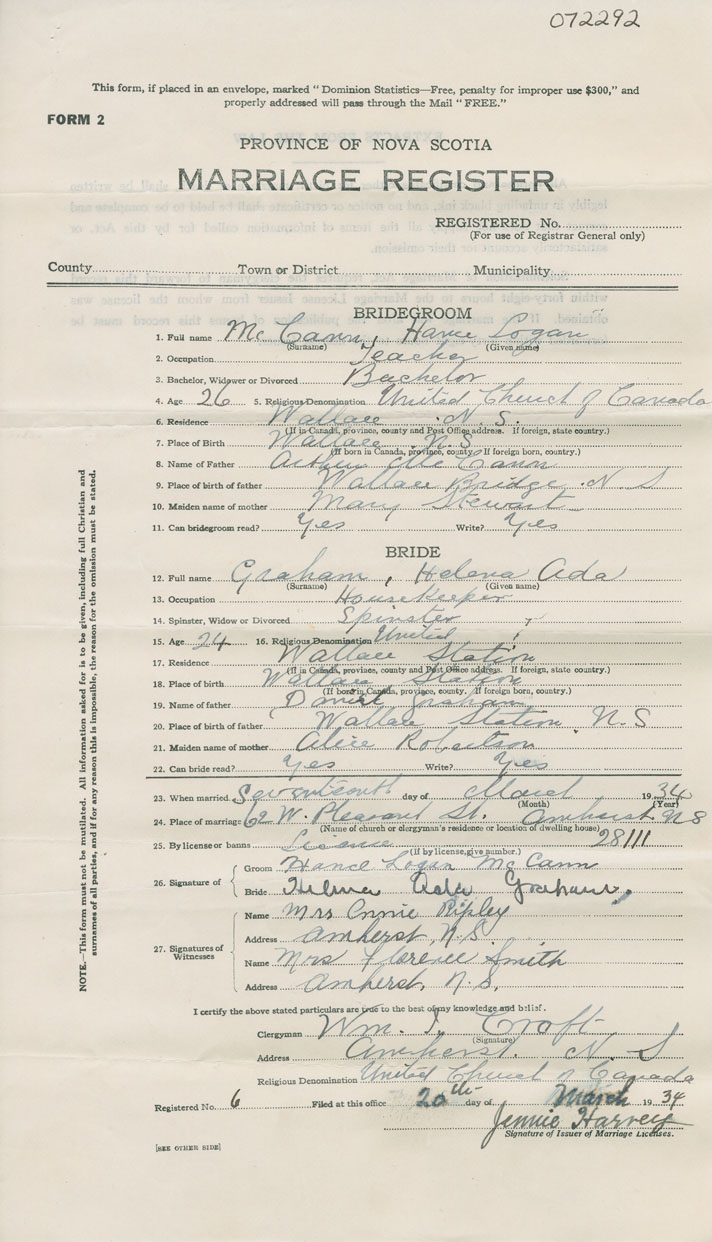 072292
This form, if placed in an envelope, marked "Dominion Statistics—Free, penalty for improper use $300," and
properly addressed will pass through the Mail "FREE."
FORM 2
PROVINCE OF NOVA SCOTIA
MARRIAGE REGISTER
REGISTERED No.
(For use of Registrar General only)
County Town or District Municipality
BRIDEGROOM
1. Full name McCann, Hance Logan
(Surname) (Given name)
2. Occupation Teacher
3. Bachelor, Widower or Divorced Bachelor
4. Age 26 5. Religious Denomination United Church of Canada
6. Residence Wallace N. S.
(If in Canada, province, county and Post Office address. If foreign, state country.)
7. Place of Birth Wallace N. S
(If born in Canada, province, county. If foreign born, country.)
8. Name of Father Arthur McCann
9. Place of birth of father Wallace Bridge N. S
10. Maiden name of mother Mary Stewart
11. Can bridegroom read? Yes Write? Yes
BRIDE
12. Full name Graham, Helena Ada
(Surname) (Given name)
13. Occupation Housekeeper
14. Spinster, Widow or Divorced Spinster
15. Age 24 16. Religious Denomination United
17. Residence Wallace Station
(If in Canada, province, county and Post Office address. If foreign, state country.)
18. Place of birth Wallace Station
(If born in Canada, province, county. If foreign born, country.)
19. Name of father Daniel Graham
20. Place of birth of father Wallace Station N. S
21. Maiden name of mother Alice Robertson
22. Can bride read? Yes Write? Yes
23. When married Seventeenth day of March 1934
(Month) (Year)
24. Place of marriage 62 W. Pleasant St. Amherst N S
(Name of church or clergyman's residence or location of dwelling house)
25. By license or banns License 28111
(If by license, give number.)
26. Signature of
Groom Hance Logan McCann
Bride Helena Ada Graham
27. Signatures of Witnesses
Name Mrs Annie Ripley
Address Amherst, N. S.
Name Mrs Florence Smith
Address Amherst, N. S.
I certify the above stated particulars are true to the best of my knowledge and belief.
Clergyman Wm. I. Croft
(Signature)
Address Amherst. N. S
Religious Denomination United Church of Canada
Registered No. 6 Filed at this office 20th day of March 1934
Jennie Harvey
Signature of Issuer of Marriage Licenses.
[SEE OTHER SIDE]
NOTE.—This form must not be mutilated. All information asked for is to be given, including full Christian and
surnames of all parties, and if for any reason this is impossible, the reason for the omission must be stated.